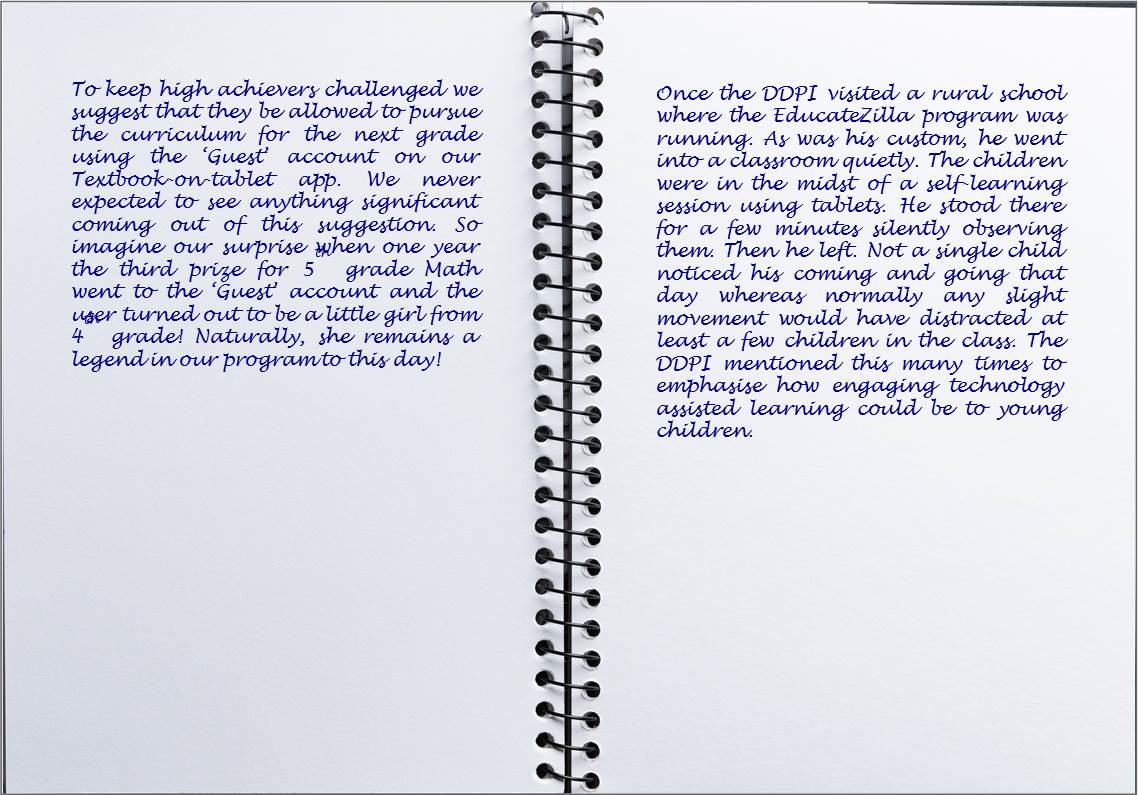 To keep high achievers challenged we
suggest that they be allowed to pursue
the curriculum for the next grade
using the ‘Guest’ account on our
Textbook-on-tablet app. We never
expected to see anything significant
coming out of this suggestion. So
imagine our surprise when one year
the third prize for 5th grade Math
went to the ‘Guest’ account and the
user turned out to be a little girl from
4th grade! Naturally, she remains a
legend in our program to this day!
Once the DDPI visited a rural school
where the EducateZilla program was
running. As was his custom, he went
into a classroom quietly. The children
were in the midst of a self-learning
session using tablets. He stood there
for a few minutes silently observing
them. Then he left. Not a single child
noticed his coming and going that
day whereas normally any slight
movement would have distracted at
least a few children in the class. The
DDPI mentioned this many times to
emphasise how engaging technology
assisted learning could be to young
children.